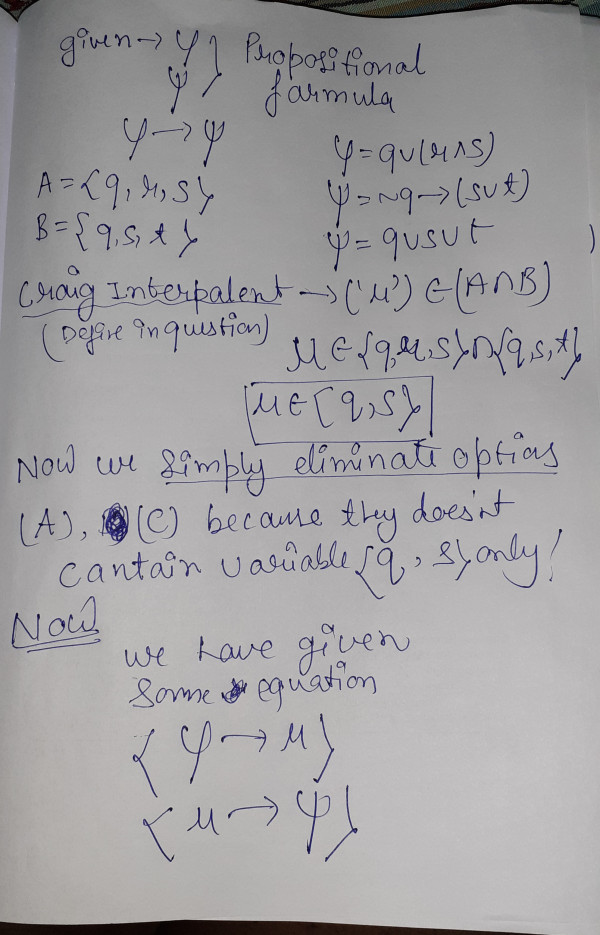 given → φ } Propositional
ψ } farmula
φ → ψ
φ = q∪(r∧s)
A = {q, r, s}
ψ = ~q → (s∪t)
B = {q, s, t}
ψ = q∪s∪t )
Craig Interpalent → ('μ') ∈ (A∩B)
(Define in question)
μ ∈ {q, r, s} ∩ {q, s, t}
μ ∈ {q, s}
Now we simply eliminate optias
(A), (C) because they does'nt
cantain variable {q, s} only!
Now
we have given
some equation
{ φ → μ }
{ μ → ψ }